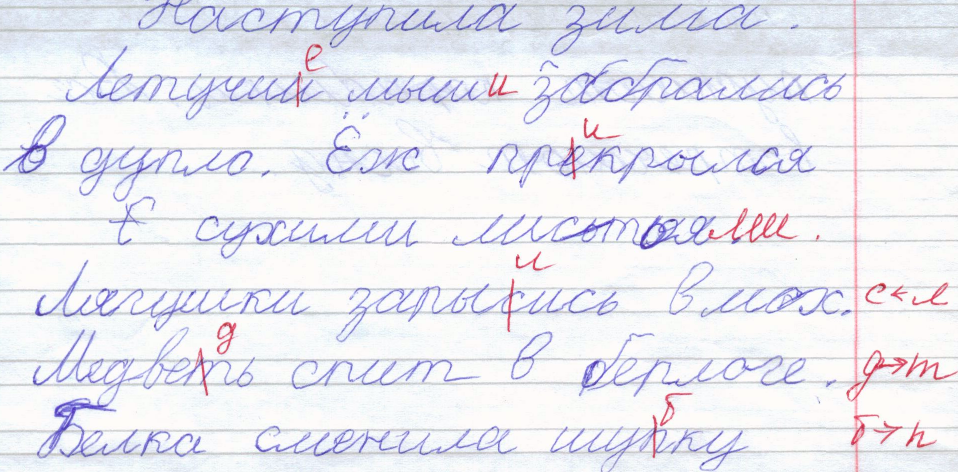 Наступила зима.
е
Летучии мыши и забрались
и
в дупло. Ёж прекрылся
сухими листьями.
л
Лягушки зарысись в мох. с<л
д
Медветь спит в берлоге. д→т
б
Белка сменила шупку б→п